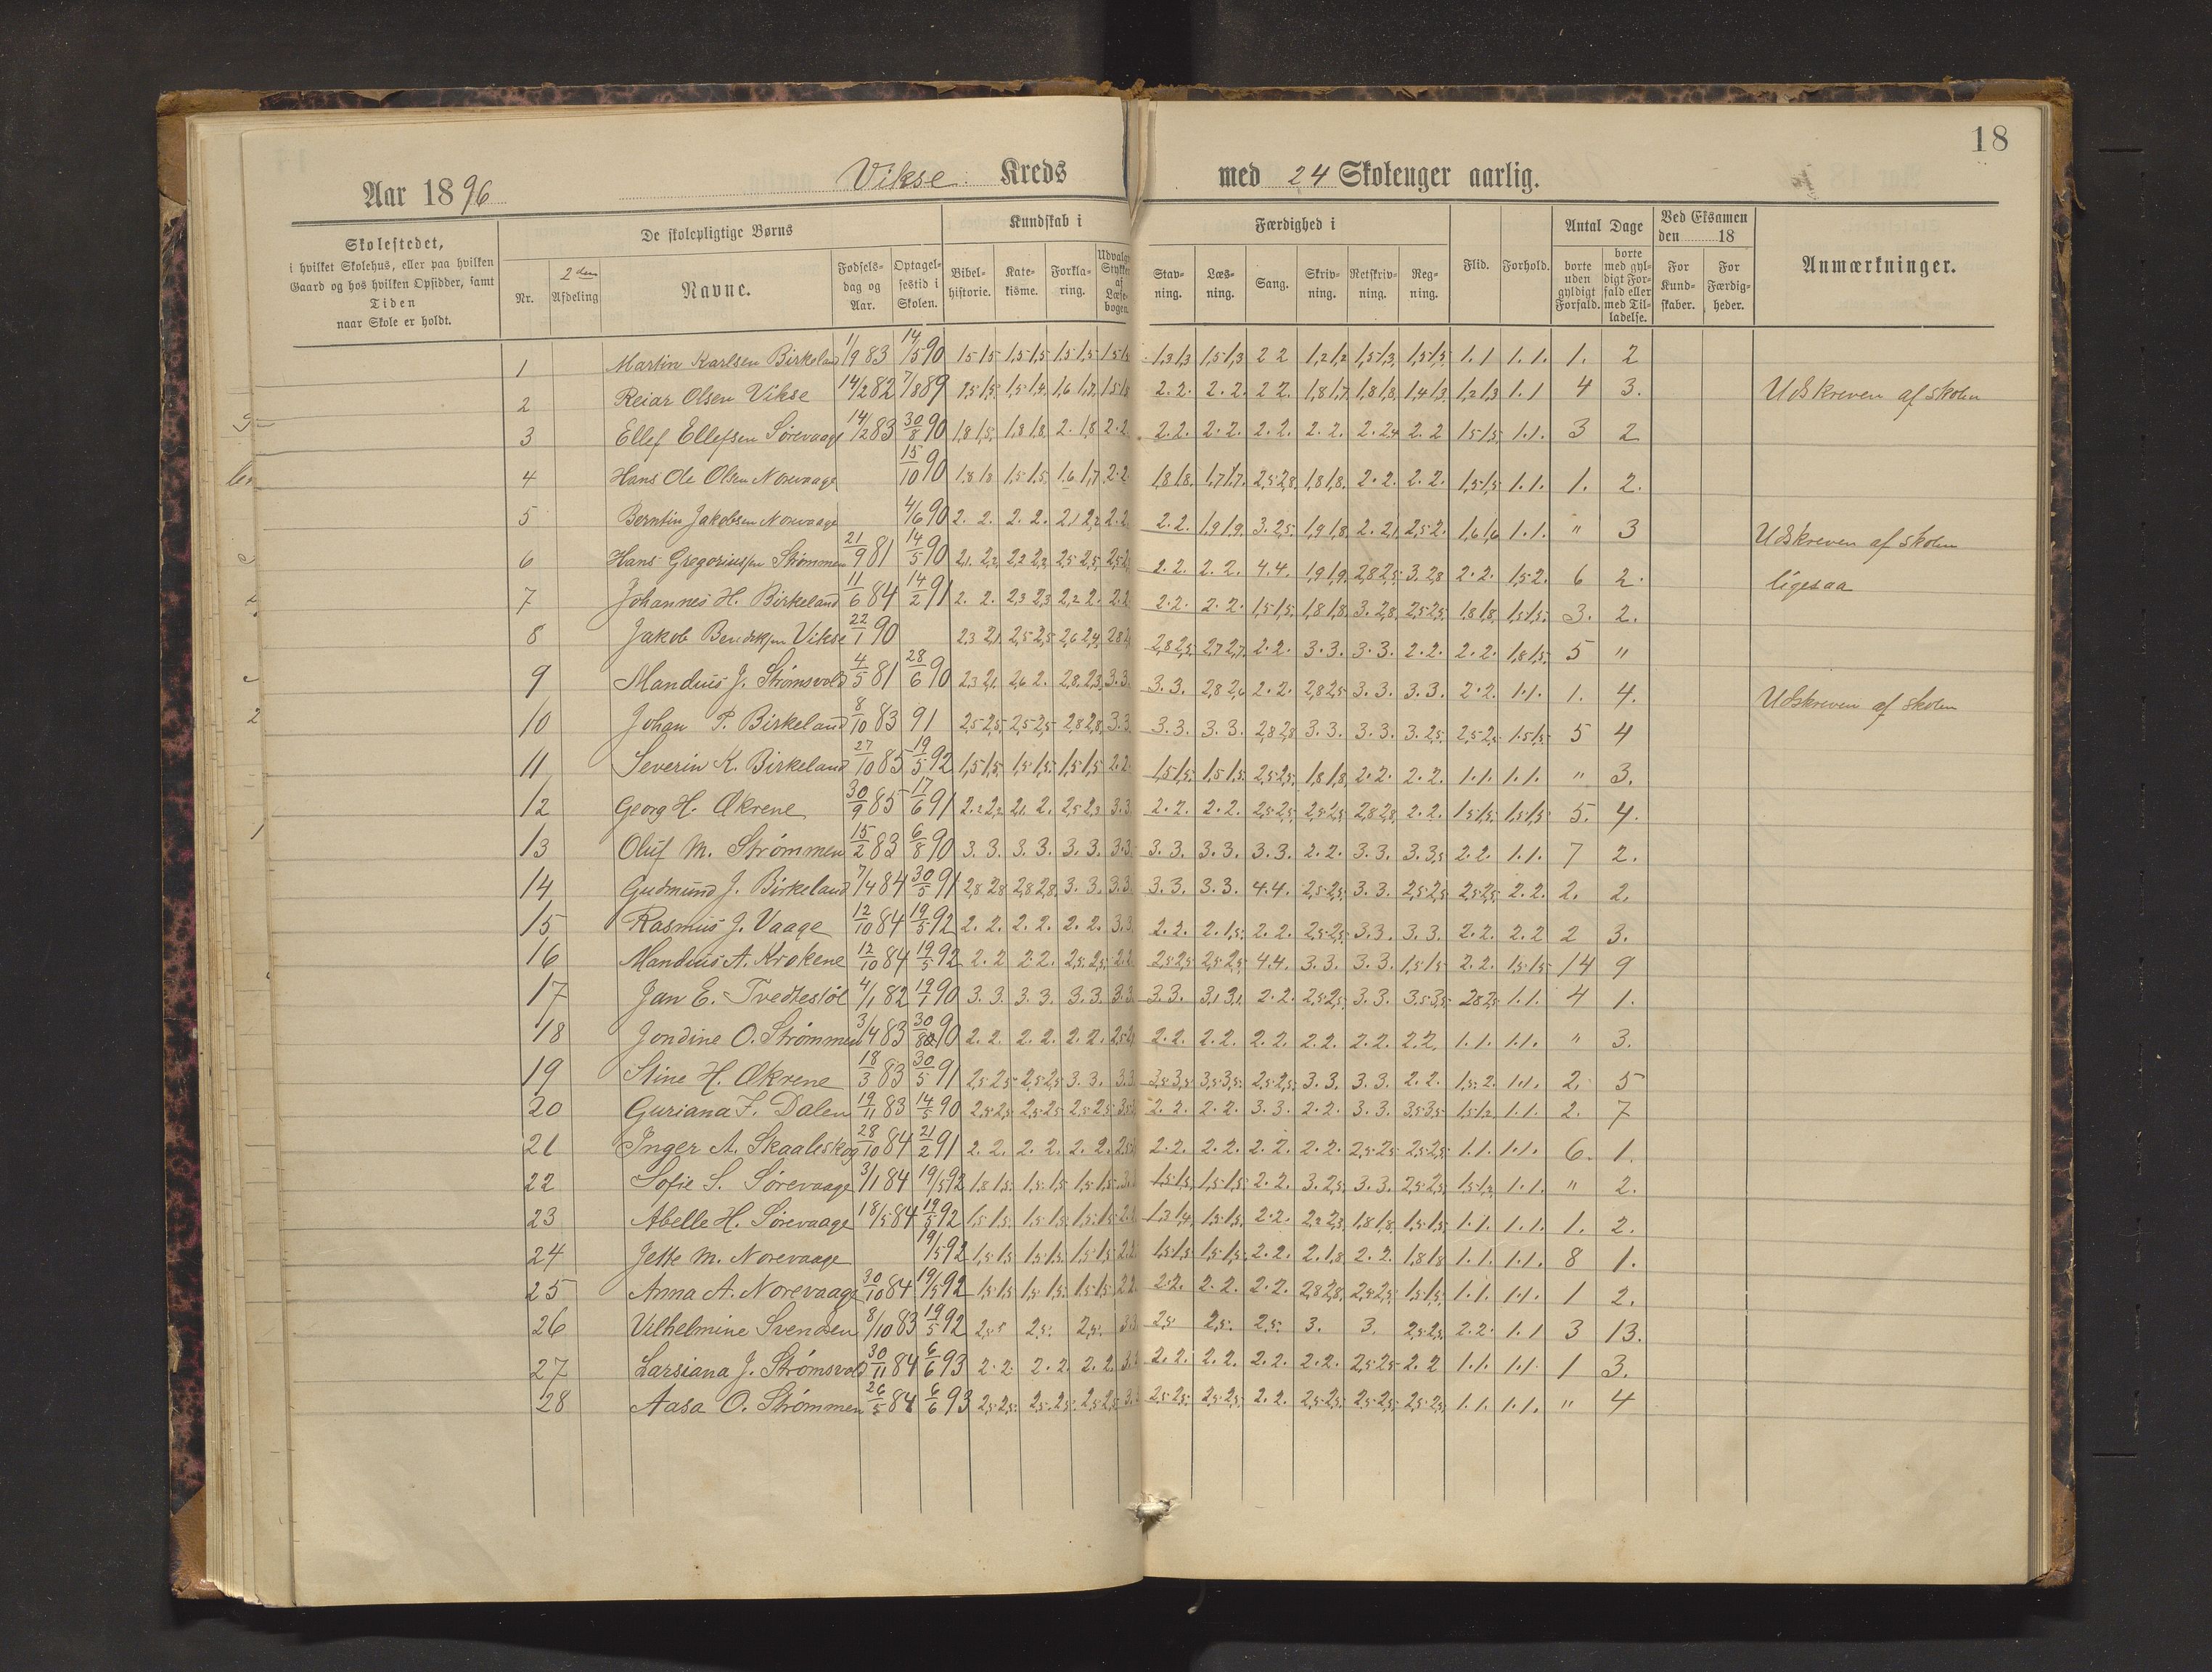 18
Aar 1896 Vikse Kreds med 24 Skoleuger aarlig.
Skolestedet, i hvilket Skolehus, eller paa hvilken Gaard og hos hvilken Opsidder, samt Tiden naar Skole er holdt.
De skolepligtige Børns
Nr. 2den Afdeling Navne. Fødselsdag og Aar. Optagelsestid i Skolen.
Kundskab i
Bibelhistorie. Katekisme. Forklaring. Udvalgte Stykker af Læsebogen.
Færdighed i
Stavning. Læsning. Sang. Skrivning. Retskrivning. Regning.
Flid. Forhold.
Antal Dage
borte uden gyldigt Forfald. borte med gyldigt Forfald eller med Tilladelse.
Ved Eksamen den 18
For Kundskaber. For Færdigheder.
Anmærkninger.
1 Martin Karlsen Birkeland 1/9 83 14/5 90 1,5 1,5 1,5 1,5 1,5 1,5 1,3 1,3 1,5 1,3 2 2 1,2 1,2 1,5 1,3 1,5 1,5 1. 1 1. 1. 1. 2
2 Reiar Olsen Vikse 14/2 82 7/8 89 2. 2. 2. 2. 2 2. 1,8 1,7 1,8 1,8 1,4 1,3 1,2 1,3 1. 1 4 3. Udskreven af skolen
3 Ellef Ellefsen Sørevaage 14/2 83 30/8 90 1,8 1,8 2. 1,8 2. 2. 2. 2. 2. 2. 2. 2. 2. 2. 2. 2,4 2. 2 1,5 1,5 1. 1. 3 2
4 Hans Ole Olsen Norevaage 15/10 90 1,8 1,8 1,5 1,5 1,6 1,7 2. 2. 1,8 1,8 1,7 1,7 2,5 2,8 1,8 1,8 2. 2. 2. 2. 1,5 1,5 1. 1. 1. 2.
5 Berntin Jakobsen Norevaage 4/6 90 2. 2. 2. 2. 2,1 2,2 2. 2. 2. 2. 1,9 1,9 3. 2,5 1,9 1,8 2. 2,1 2,5 2. 1,6 1,6 1. 1. " 3 Udskreven af skolen
6 Hans Gregoriussen Strømmen 21/9 81 14/5 90 2,1 2,2 2,2 2,2 2,5 2,5 2. 2. 2. 2. 4. 4. 1,9 1,9 2,8 2,5 3. 2,8 2. 2. 1,5 2. 6 2. ligesaa
7 Johannes H. Birkeland 11/6 84 14/2 91 2. 2. 2,3 2,3 2,2 2. 2. 2. 2. 2. 2. 2. 1,5 1,5 1,8 1,8 3. 2,8 2,5 2,5 1,8 1,8 1,5 1,5 3. 2.
8 Jakob Bendiksen Vikse 22/1 90 2,3 2,1 2,5 2,5 2,6 2,4 2,8 2,5 2,7 2,7 2. 2. 3. 3. 3. 3. 2. 2. 2. 2. 1,8 1,5 5 "
9 Mandius J. Strømsvold 4/5 81 28/6 90 2,3 2,1 2,6 2. 2,8 2,3 3. 3. 3. 3. 2,8 2,6 2. 2. 2,8 2,5 3. 3. 3. 3. 2. 2. 1. 1. 1. 4. Udskreven af skolen
10 Johan P. Birkeland 8/10 83 91 2,5 2,5 2,5 2,5 2,8 2,8 3. 3. 3. 3. 3. 3. 2,8 2,8 3. 3. 3. 3. 3. 2,5 2,5 2,5 1,5 1,5 5 4
11 Severin K. Birkeland 27/10 83 19/5 92 1,5 1,5 1,5 1,5 1,5 1,5 2. 2. 1,5 1,5 1,5 1,5 2,5 2,5 1,8 1,8 2. 2. 2. 2. 1. 1. 1. 1. " 3.
12 Georg H. Økrene 30/9 85 17/6 91 2. 2,2 2,1 2. 2,5 2,3 3. 3. 2. 2. 2. 2. 2,5 2,5 2,5 2,5 2,8 2,8 2. 2. 1,5 1,5 1,5 1,5 5. 4.
13 Oluf M. Strømmen 15/2 83 6/8 90 3. 3. 3. 3. 3. 3. 3. 3. 3. 3. 3. 3. 3. 3. 2. 2. 3. 3. 3. 3,5 2. 2. 1. 1. 7 2.
14 Gudmund J. Birkeland 7/4 84 30/5 91 2,8 2,8 2,8 2,8 3. 3. 3. 3. 3. 3. 3. 3. 4. 4. 2,5 2,5 3. 3. 2,5 2,5 2,5 2,5 2. 2. 2. 2.
15 Rasmus J. Vaage 12/10 84 19/5 92 2. 2. 2. 2. 2. 2. 3. 3. 2. 2. 2. 1,5 2. 2. 2,5 2,5 3. 3. 3. 3. 2. 2. 2. 2 2 3.
16 Mandius A. Krokene 12/10 84 19/5 92 2. 2 2. 2. 2,5 2,5 2. 2. 2,5 2,5 2,5 2,5 4. 4. 3. 3. 3. 3. 1,5 1,5 2. 2. 1,5 1,5 14 9
17 Jan E. Tvedtesløl 4/1 82 19/1 90 3. 3. 3. 3. 3. 3. 3. 3. 3. 3. 3,1 3,1 2. 2. 2,5 2,5 3. 3. 3,5 3,5 2,8 2,5 1. 1. 4 1.
18 Jondine O. Strømmen 3/4 83 30/8 90 2. 2. 2. 2. 2. 2. 2. 2. 2. 2. 2. 2. 2. 2. 2. 2. 2. 2. 1. 1. 1. 1. " 3.
19 Stine H. Økrene 18/3 83 30/5 91 2,5 2,5 2,5 2,5 3. 3. 3. 3. 3,5 3,5 3,5 3,5 2,5 2,5 3. 3. 3. 3. 2. 2. 1,5 2. 1. 1. 2. 5
20 Guriana F. Dalen 19/11 83 14/5 90 2,5 2,5 2,5 2,5 2,5 2,5 2. 2. 2. 2. 3. 3. 2. 2. 3. 3. 3,5 3,5 1,5 1,2 1. 1. 2. 7
21 Inger A. Skaaleskog 28/10 84 21/2 91 2. 2. 2. 2. 2. 2. 2. 2. 2. 2. 2. 2. 2. 2. 2,5 2,5 2,5 2,5 1. 1. 1. 1. 6. 1.
22 Sofie S. Sørevaage 3/1 84 19/5 92 1,8 1,5 1,5 1,5 1,5 1,5 1,5 1,5 1,5 1,5 2. 2. 3. 2,5 3. 3. 2,5 2,5 1,5 1,2 1. 1. " 2.
23 Abelle H. Sørevaage 18/5 84 19/5 92 1,5 1,5 1,5 1,5 1,5 1,5 1,3 1,4 1,5 1,5 2. 2. 2,2 2,3 1,8 1,8 1,5 1,5 1. 1. 1. 1. 1. 2.
24 Jette M. Norevaage 19/5 92 1,5 1,5 1,5 1,5 1,5 1,5 2. 2. 1,5 1,5 1,5 1,5 2. 2. 2. 1,8 2. 2. 1,8 1,8 1. 1. 1. 1. 8 1.
25 Anna A. Norevaage 30/10 84 19/5 92 1,5 1,5 1,5 1,5 1,5 1,5 2 2. 2. 2. 2. 2. 2. 2. 2,8 2,8 2,5 2,5 1,5 1,5 1. 1. 1. 1. 1 2.
26 Vilhelmine Svendsen 8/10 83 19/5 92 2,5 2,5 2,5 3. 3. 2,5 2,5 2,5 3. 3. 2,5 2,5 2. 2. 1. 1 3 13.
27 Larsiana J. Strømsvold 30/11 84 6/6 93 2. 2. 2. 2. 2. 2. 2. 2. 2. 2. 2. 2. 2. 2. 2,5 2,5 2. 2 1. 1. 1. 1. 1 3.
28 Aasa O. Strømmen 26/5 84 6/6 93 2,5 2,5 2,5 2,5 2,5 2,5 2,5 2,5 2,5 2,5 2. 2. 2,5 2,5 2,5 2,5 2,5 2,5 1. 1. 1. 1. " 4